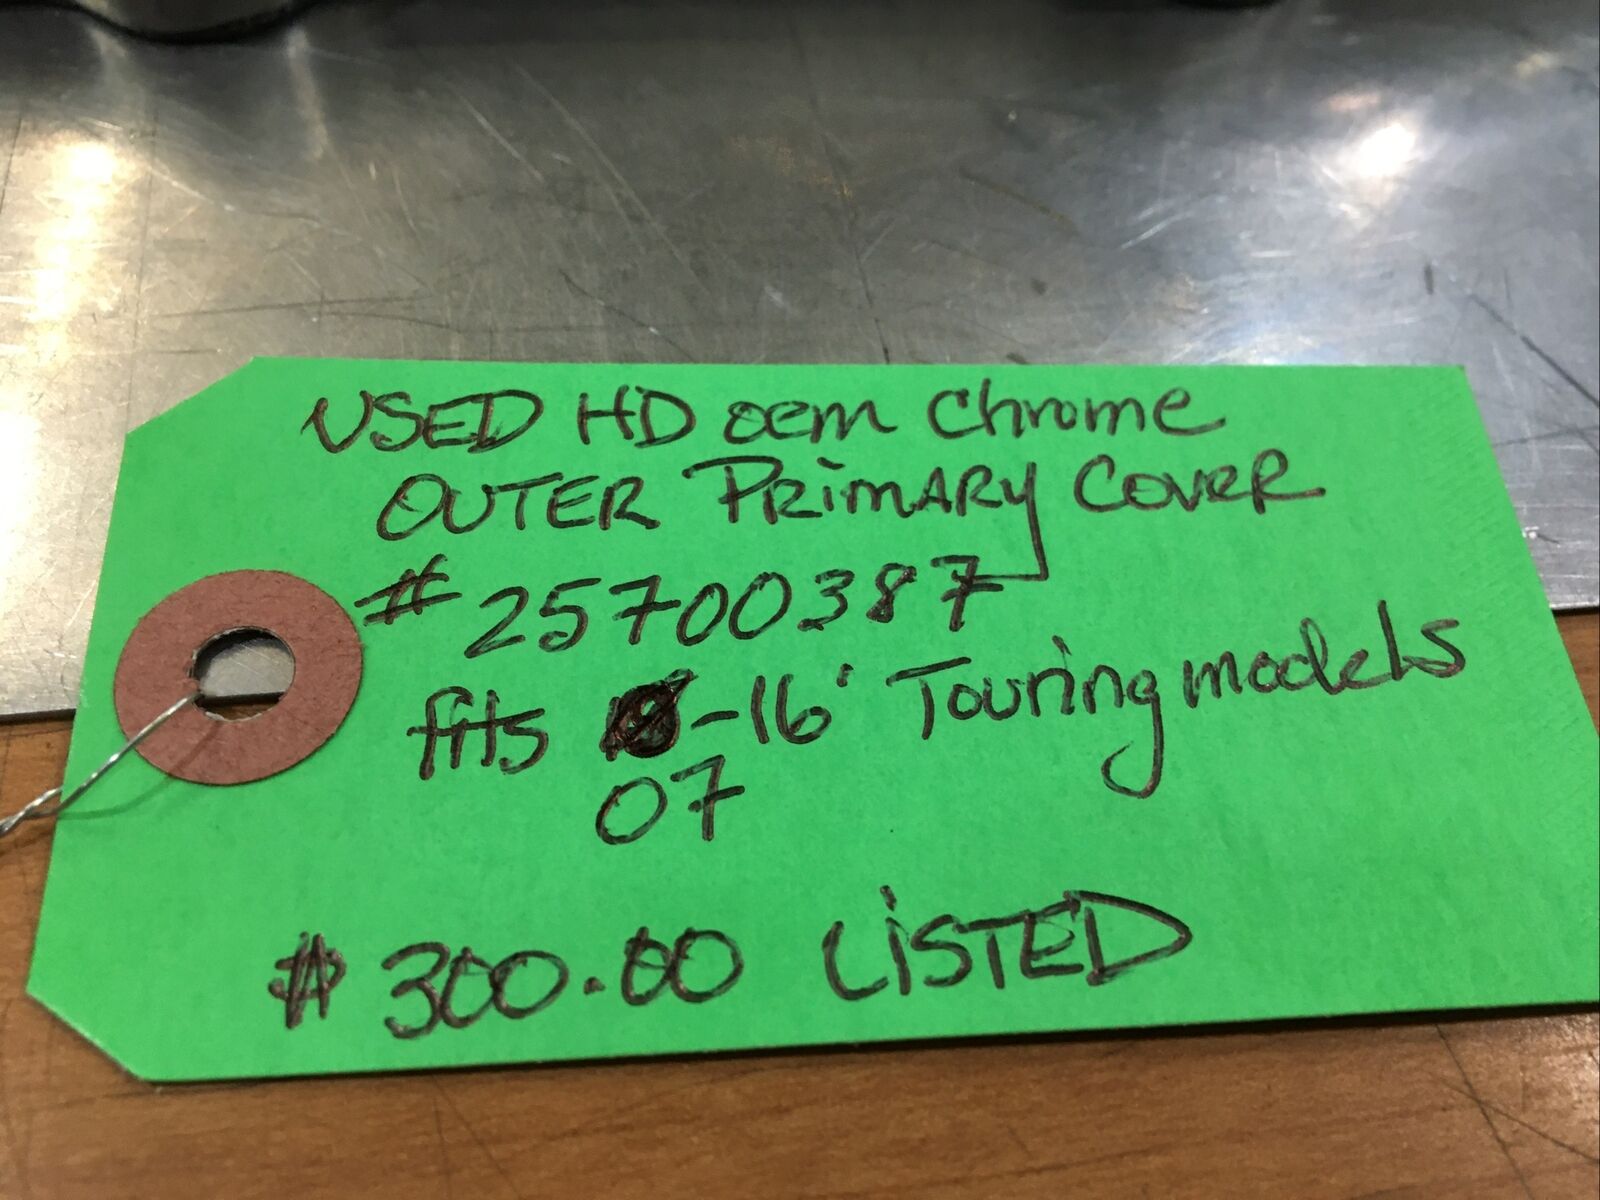 USED HD oem Chrome
OUTER PRimARY COVER
# 25700387
fits -16' Touring models
07
$ 300.00 LiSTED